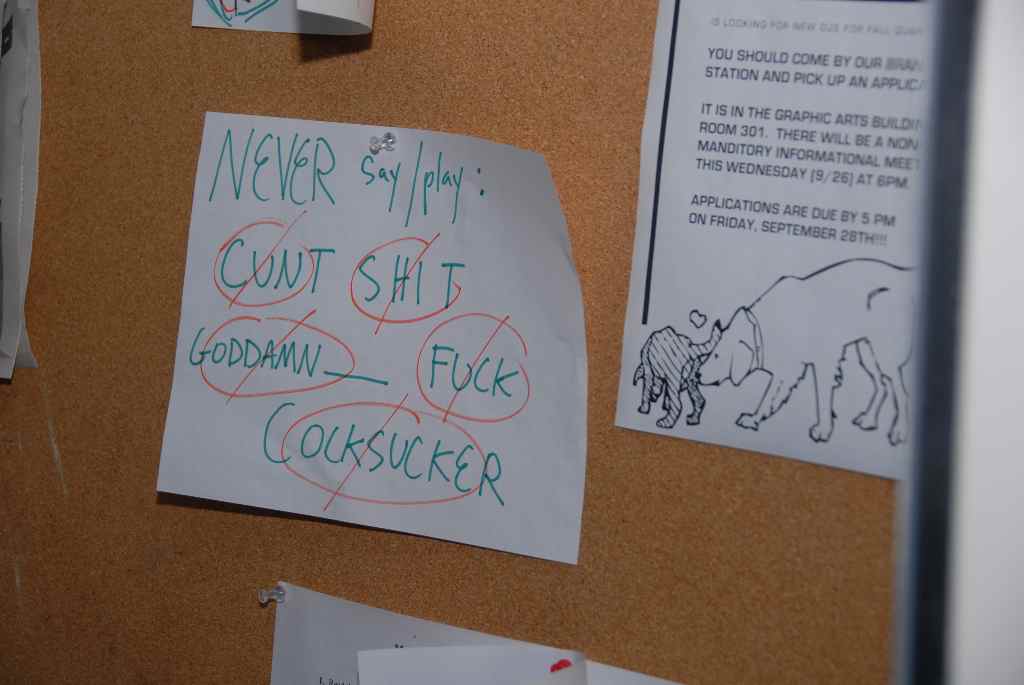 NEVER say/play:
CUNT SHIT
GODDAMN__ FUCK
COCKSUCKER
IS LOOKING FOR NEW DJS FOR FALL
YOU SHOULD COME BY OUR
STATION AND PICK UP AN
IT IS IN THE GRAPHIC ARTS
ROOM 301. THERE WILL BE A NON
MANDITORY INFORMATIONAL
THIS WEDNESDAY (9/26) AT 6PM.
APPLICATIONS ARE DUE BY 5 PM
ON FRIDAY, SEPTEMBER 28TH!!!